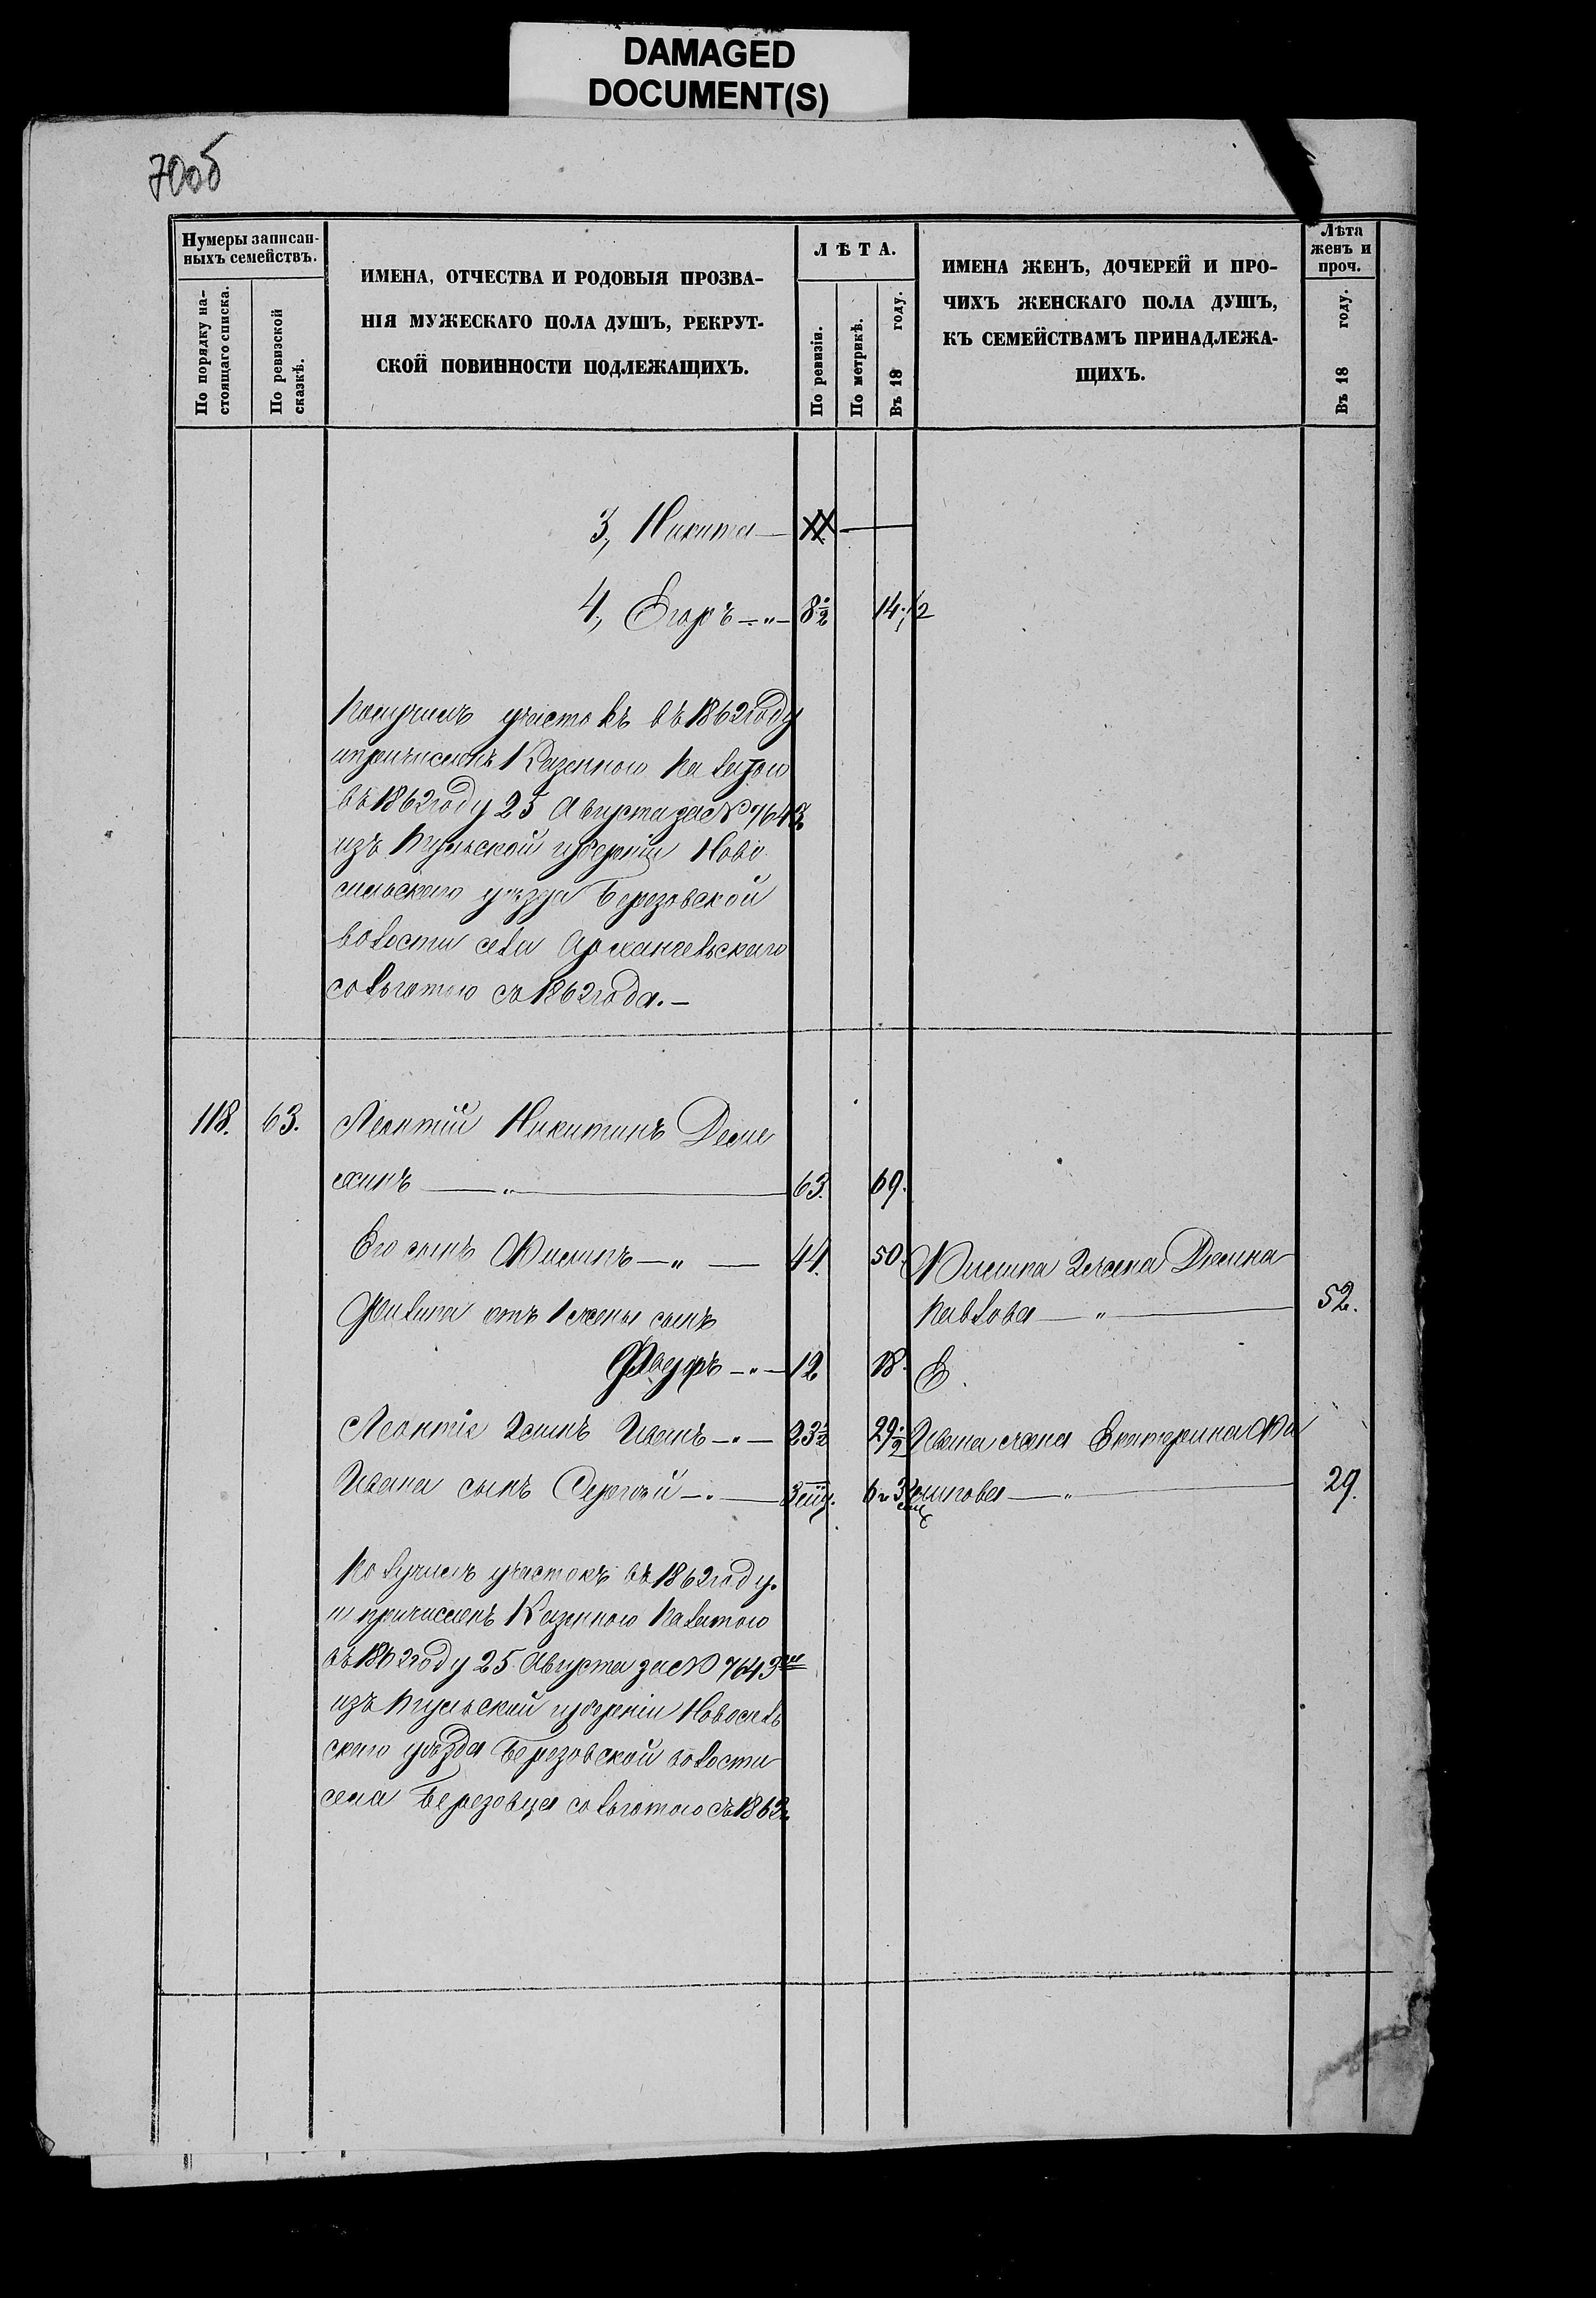 DAMAGED
DOCUMENT(S)
70об
Нумеры записан-
ныхъ семействъ.
По порядку на-
стоящаго списка.
По ревизской
сказкѣ.
ИМЕНА, ОТЧЕСТВА И РОДОВЫЯ ПРОЗВА-
НІЯ МУЖЕСКАГО ПОЛА ДУШЪ, РЕКРУТ-
СКОЙ ПОВИННОСТИ ПОДЛЕЖАЩИХЪ.
ЛѢТА.
По ревизіи.
По метрикѣ.
Въ 18 году.
ИМЕНА ЖЕНЪ, ДОЧЕРЕЙ И ПРО-
ЧИХЪ ЖЕНСКАГО ПОЛА ДУШЪ,
КЪ СЕМЕЙСТВАМЪ ПРИНАДЛЕЖА-
ЩИХЪ.
Лѣта
женъ и
проч.
Въ 18 году.
3, Никита —
4, Егоръ —„— 8½ 14½
Получилъ участокъ въ 1862 году
и причисленъ Казенною Палатою
въ 1862 году 25 Августа за № 7643
изъ Тульской губерніи Ново
сильскаго уѣзда Березовской
волости села Архангельскаго
со льготою съ 1862 года. —
118. 63. Леонтій Никитинъ
хинъ — „ — 63. 69.
Его сынъ Филипъ —„— 44. 50. Филипа 2 жена
Павлова — „ — 52.
Филипа отъ 1 жены сынъ
12 18.
Леонтія 2 сынъ Иванъ —„— 23½ 29½ Ивана жена Екатерина Фи
Ивана сынъ Сергѣй —„— 29.
Получилъ участокъ въ 1862 году.
и причисленъ Казенною Палатою
въ 1862 году 25 Августа за № 7643
изъ Тульской губерніи Новосиль
скаго уѣзда Березовской волости
села Березовца со льготою съ 1862